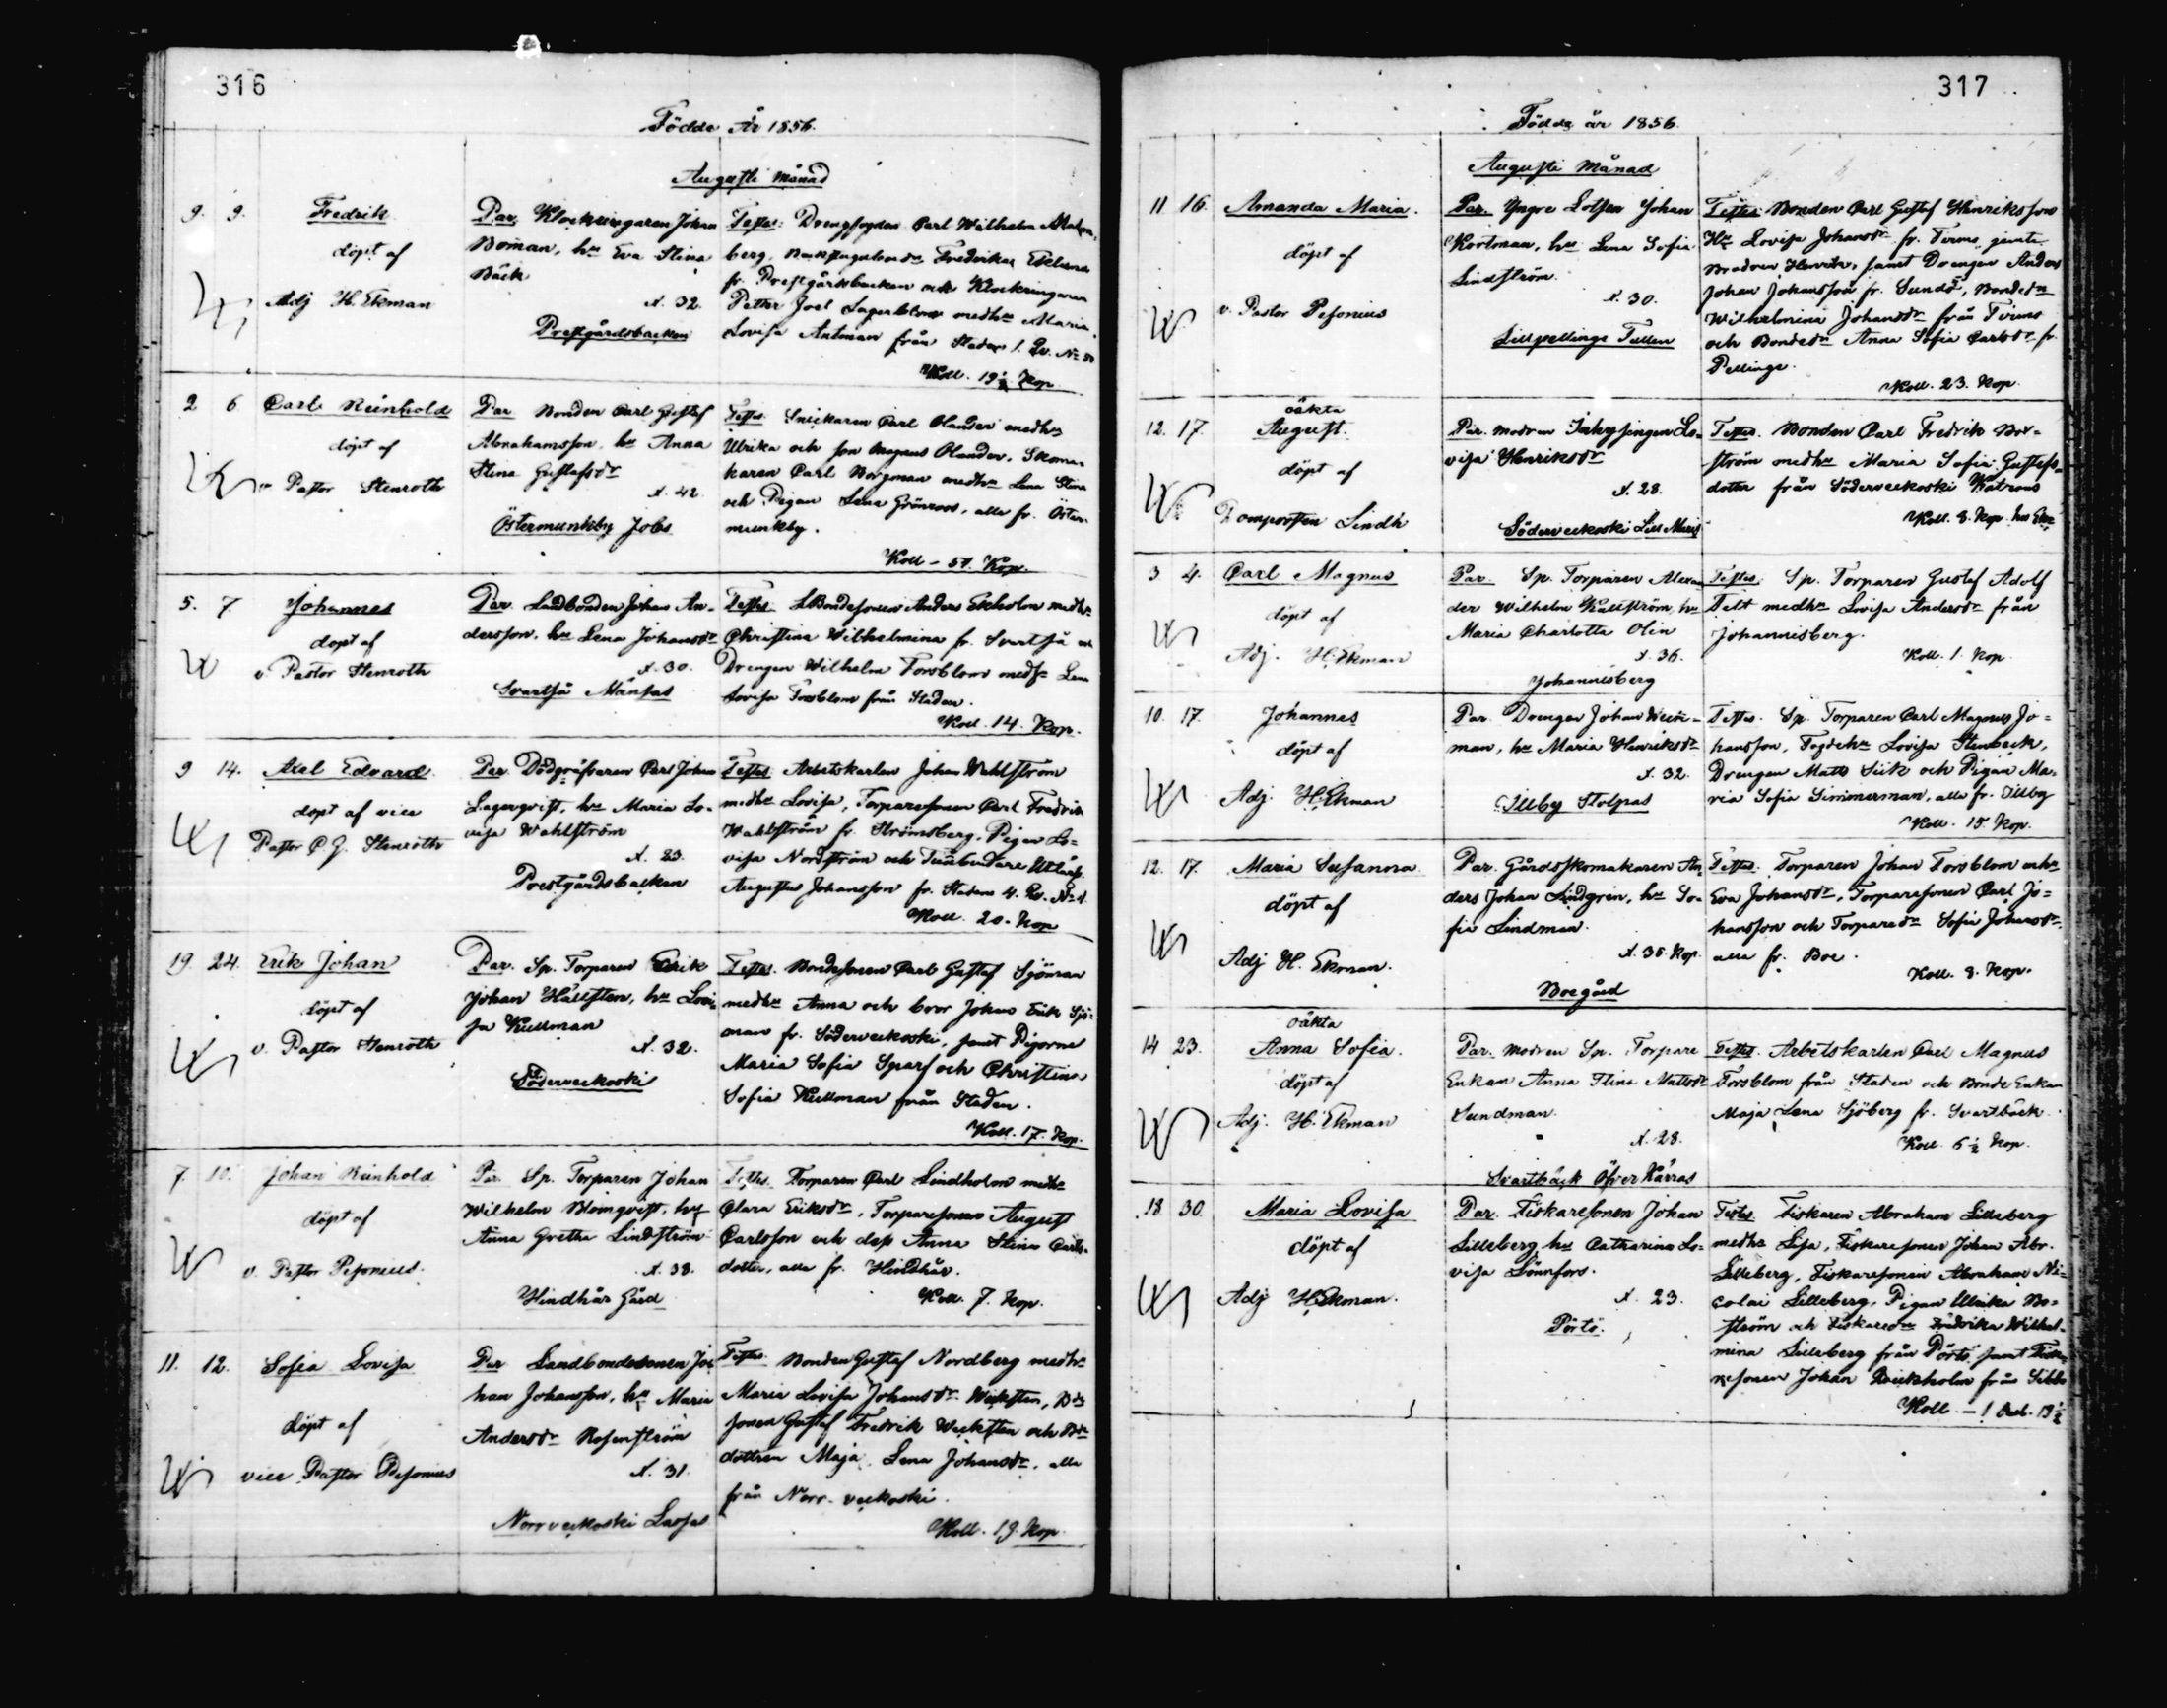 316
Födde År 1856.
Augusti Månad
9. 9. Fredrik
döpt af
Adj H. Ekman
Par. Klockringaren Johan
Boman, hu Eva Stina
Bäck
å. 32.
Prestgårdsbacken
Testes: Drengfogden Carl Wilhelm
berg, Fredrika Eklund
fr. Prestgårdsbacken och Klockringaren
Petter Joel Lagerblom medhu Maria
Lovisa Antman från Staden 1. Qv. No
Koll. 19½ Kop
2 6 Carl Reinhold
döpt af
v. Pastor Stenroth
Par Bonden Carl Gustaf
Abrahamsson, hu Anna
Stina Gustafsdr
å. 42.
Östermunkby Jobs
Testes Snickaren Carl Olander medhu
Ulrika och son Magnus Olander, Skoma-
karen Carl Borgman medhu Lena Stina
och Pigan Lena Grönroos, alla fr. Öster-
munkby.
Koll - 51. Kop.
5. 7 Johannes
döpt af
v Pastor Stenroth
Par. Landbonden Johan An-
dersson, hu Lena Johansdr
å. 30.
Svartså Månsas
Testes LBondesonen Anders Ekholm medhu
Christina Wilhelmina fr. Svartså och
Drengen Wilhelm Forsblom Lena
Lovisa Forsblom från Staden.
Koll. 14. Kop.
9 14. Axel Edvard
döpt af vice
Pastor C. J. Stenroth
Par. Dödgräfvaren Carl Johan
Lagerqvist, hu Maria Lo-
visa Wahlström
å. 23.
Prestgårdsbacken
Testes Arbetskarlen Johan Wahlström
medhu Lovisa, Torparesonen Carl Fredrik
Wahlström fr. Strömsberg, Pigan Lo-
visa Nordström och
Augustus Johansson fr. Staden 4. Qv. No
Koll. 20. Kop
19. 24. Erik Johan
döpt af
v. Pastor Stenroth
Par. Sp. Torparen Erik
Johan Hällsten, hu Lovi-
sa Kullman
å. 32.
Söderveckoski
Testes. Bondesonen Carl Gustaf Sjöman
medhu Anna och bror Johan Erik Sjö-
man fr. Söderveckoski, samt Pigorne
Maria Sofia Sparf och Christina
Sofia Kullman från Staden.
Koll. 17. Kop.
7. 10. Johan Reinhold
döpt af
v. Pastor Pesonius.
Par. Sp. Torparen Johan
Wilhelm Blomqvist, hu
Anna Gretha Lindström
å. 38.
Hindhår Gård
Testes. Torparen Carl Lindholm medhu
Clara Eriksdr, Torparesonen August
Carlsson och Anna Stina Carls-
dotter, alla fr. Hindhår.
Koll. 7. Kop.
11. 12. Sofia Lovisa
döpt af
vice Pastor Pesonius
Par Landbondesonen Jo-
han Johansson, hu Maria
Andersdr Rosenström
å. 31.
Norrveckoski Lasses
Testes. Bonden Gustaf Nordberg medhu
Maria Lovisa Johansdr Wecksten, Bde
sonen Gustaf Fredrik Wecksten och Bde
dottren Maja Lena Johansdr, alla
från Norr-veckoski.
Koll. 19. Kop.
317
Födde år 1856
Augusti Månad
11 16. Amanda Maria.
döpt af
v. Pastor Pesonius
Par. Yngre Lotsen Johan
Kortman, hu Lena Sofia
Lindström.
å. 30.
Lillpellinge Tullen
Testes: Bonden Carl Gustaf Henriksson
Hu Lovisa Johansdr fr. Tirmo, jemte
Brodren Henrik, samt Drengen Anders
Johan Johansson fr. Sundö, Bondedr
Wilhelmina Johansdr från Tirmo
och Bondedr Anna Sofia Carlsdr fr.
Pellinge.
Koll. 23. Kop.
12. 17. oäkta
August.
döpt af
Domprosten Lindh
Par. modren Inhysingen Lo-
visa Henriksdr
å. 28.
Söderveckoski Lill Maris
Testes. Bonden Carl Fredrik Box-
ström medhu Maria Sofia Gustafs-
dotter från Söderveckoski Katrons
Koll. 8. Kop.
3 4. Carl Magnus
döpt af
Adj. H. Ekman
Par. Sp. Torparen Alexan-
der Wilhelm Källström, hu
Maria Charlotta Olin
å. 36.
Johannisberg
Testes. Sp. Torparen Gustaf Adolf
Tilt medhu Lovisa Andersdr från
Johannisberg.
Koll. 1. Kop.
10. 17. Johannes
döpt af
Adj. H. Ekman
Par. Drengen Johan Weck-
man, hu Maria Henriksdr
å. 32.
Illby Stolpas
Testes. Sp. Torparen Carl Magnus Jo-
hansson, Lovisa Stenbeck,
Drengen Matts Siik och Pigan Ma-
ria Sofia Simmerman, alla fr. Illby
Koll. 15. Kop.
12. 17. Maria Susanna
döpt af
Adj H. Ekman.
Par. Gårdsskomakaren An-
ders Johan Lindgren, hu So-
fia Lindman.
å. 35. Kop.
Boe gård
Testes. Torparen Johan Forsblom
Eva Johansdr, Torparesonen Carl Jo-
hansson och Torparedr Sofia Johansdr
alla fr. Boe.
Koll. 8. Kop.
14 23. oäkta
Anna Sofia.
döpt af
Adj. H. Ekman
Par. modren Sp. Torpare
Enkan Anna Stina Mattsdr
Sundman.
å. 28.
Svartbäck Öfver Kärras
Testes. Arbetskarlen Carl Magnus
Forsblom från Staden och Bonde Enkan
Maja Lena Sjöberg fr. Svartbäck.
Koll. 6½ Kop.
18 30. Maria Lovisa
döpt af
Adj H. Ekman.
Par. Fiskaresonen Johan
Lilleberg, hu Catharina Lo-
visa Lönnfors.
å. 23.
Pörtö.
Testes. Fiskaren Abraham Lilleberg
medhu Lisa, Fiskaresonen Johan Abr.
Lilleberg, Fiskaresonen Abraham Ni-
colai Lilleberg, Pigan Ulrika Bo-
ström och Fiskaredr Fredrika Wilhel-
mina Lilleberg från Pörtö, samt Fiska-
resonen Johan från Sibbo
Koll. - 1 Rub. 13½